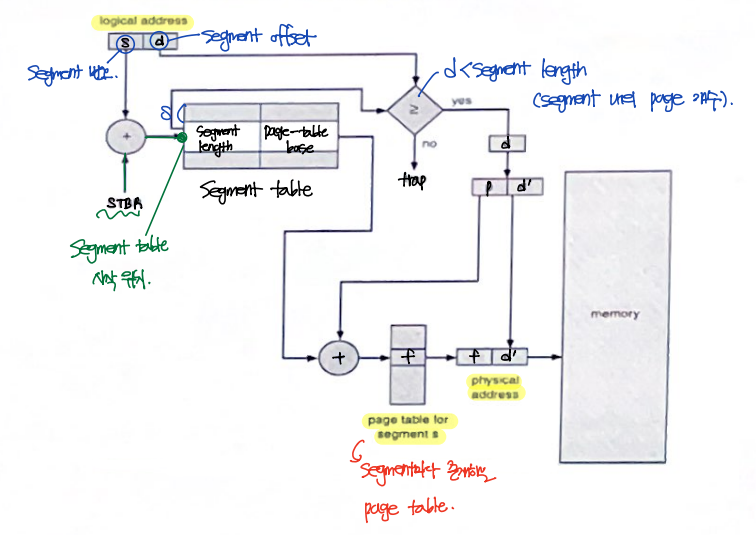 logical address
s d
segment offset
segment 번호.
d < segment length
(segment 내의 page 개수).
s
yes
≥
no
trap
+
Segment length
page-table base
Segment table
STBR
Segment table
시작 위치.
d
p d'
memory
+
f
f d'
physical
address
page table for
segment s
segment마다 존재하는
page table.